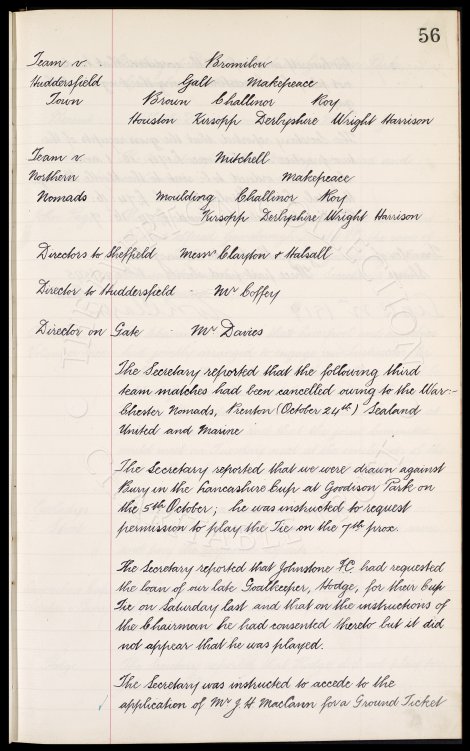 56
Team v. Bromilow
Huddersfield Galt Makepeace
Town Brown Challinor Roy
Houston Kirsopp Derbyshire Wright Harrison
Team v. Mitchell
Northern Makepeace
Nomads Moulding Challinor Roy
Kirsopp Derbyshire Wright Harrison
Directors to Sheffield Messrs Clayton & Halsall
Director to Huddersfield - Mr Coffey
Director on Gate - Mr Davies
The Secretary reported that the following third
team matches had been cancelled owing to the War:-
Chester Nomads, Prenton (October 24th) Sealand
United and Marine
The Secretary reported that we were drawn against
Bury in the Lancashire Cup at Goodison Park on
the 5th October; he was instructed to request
permission to play the Tie on the 7th prox.
The Secretary reported that Johnstone F.C. had requested
the loan of our late Goalkeeper, Hodge, for their Cup
Tie on Saturday last and that on the instructions of
the Chairman he had consented thereto but it did
not appear that he was played.
The Secretary was instructed to accede to the
application of Mr J. H MacCann for a Ground Ticket